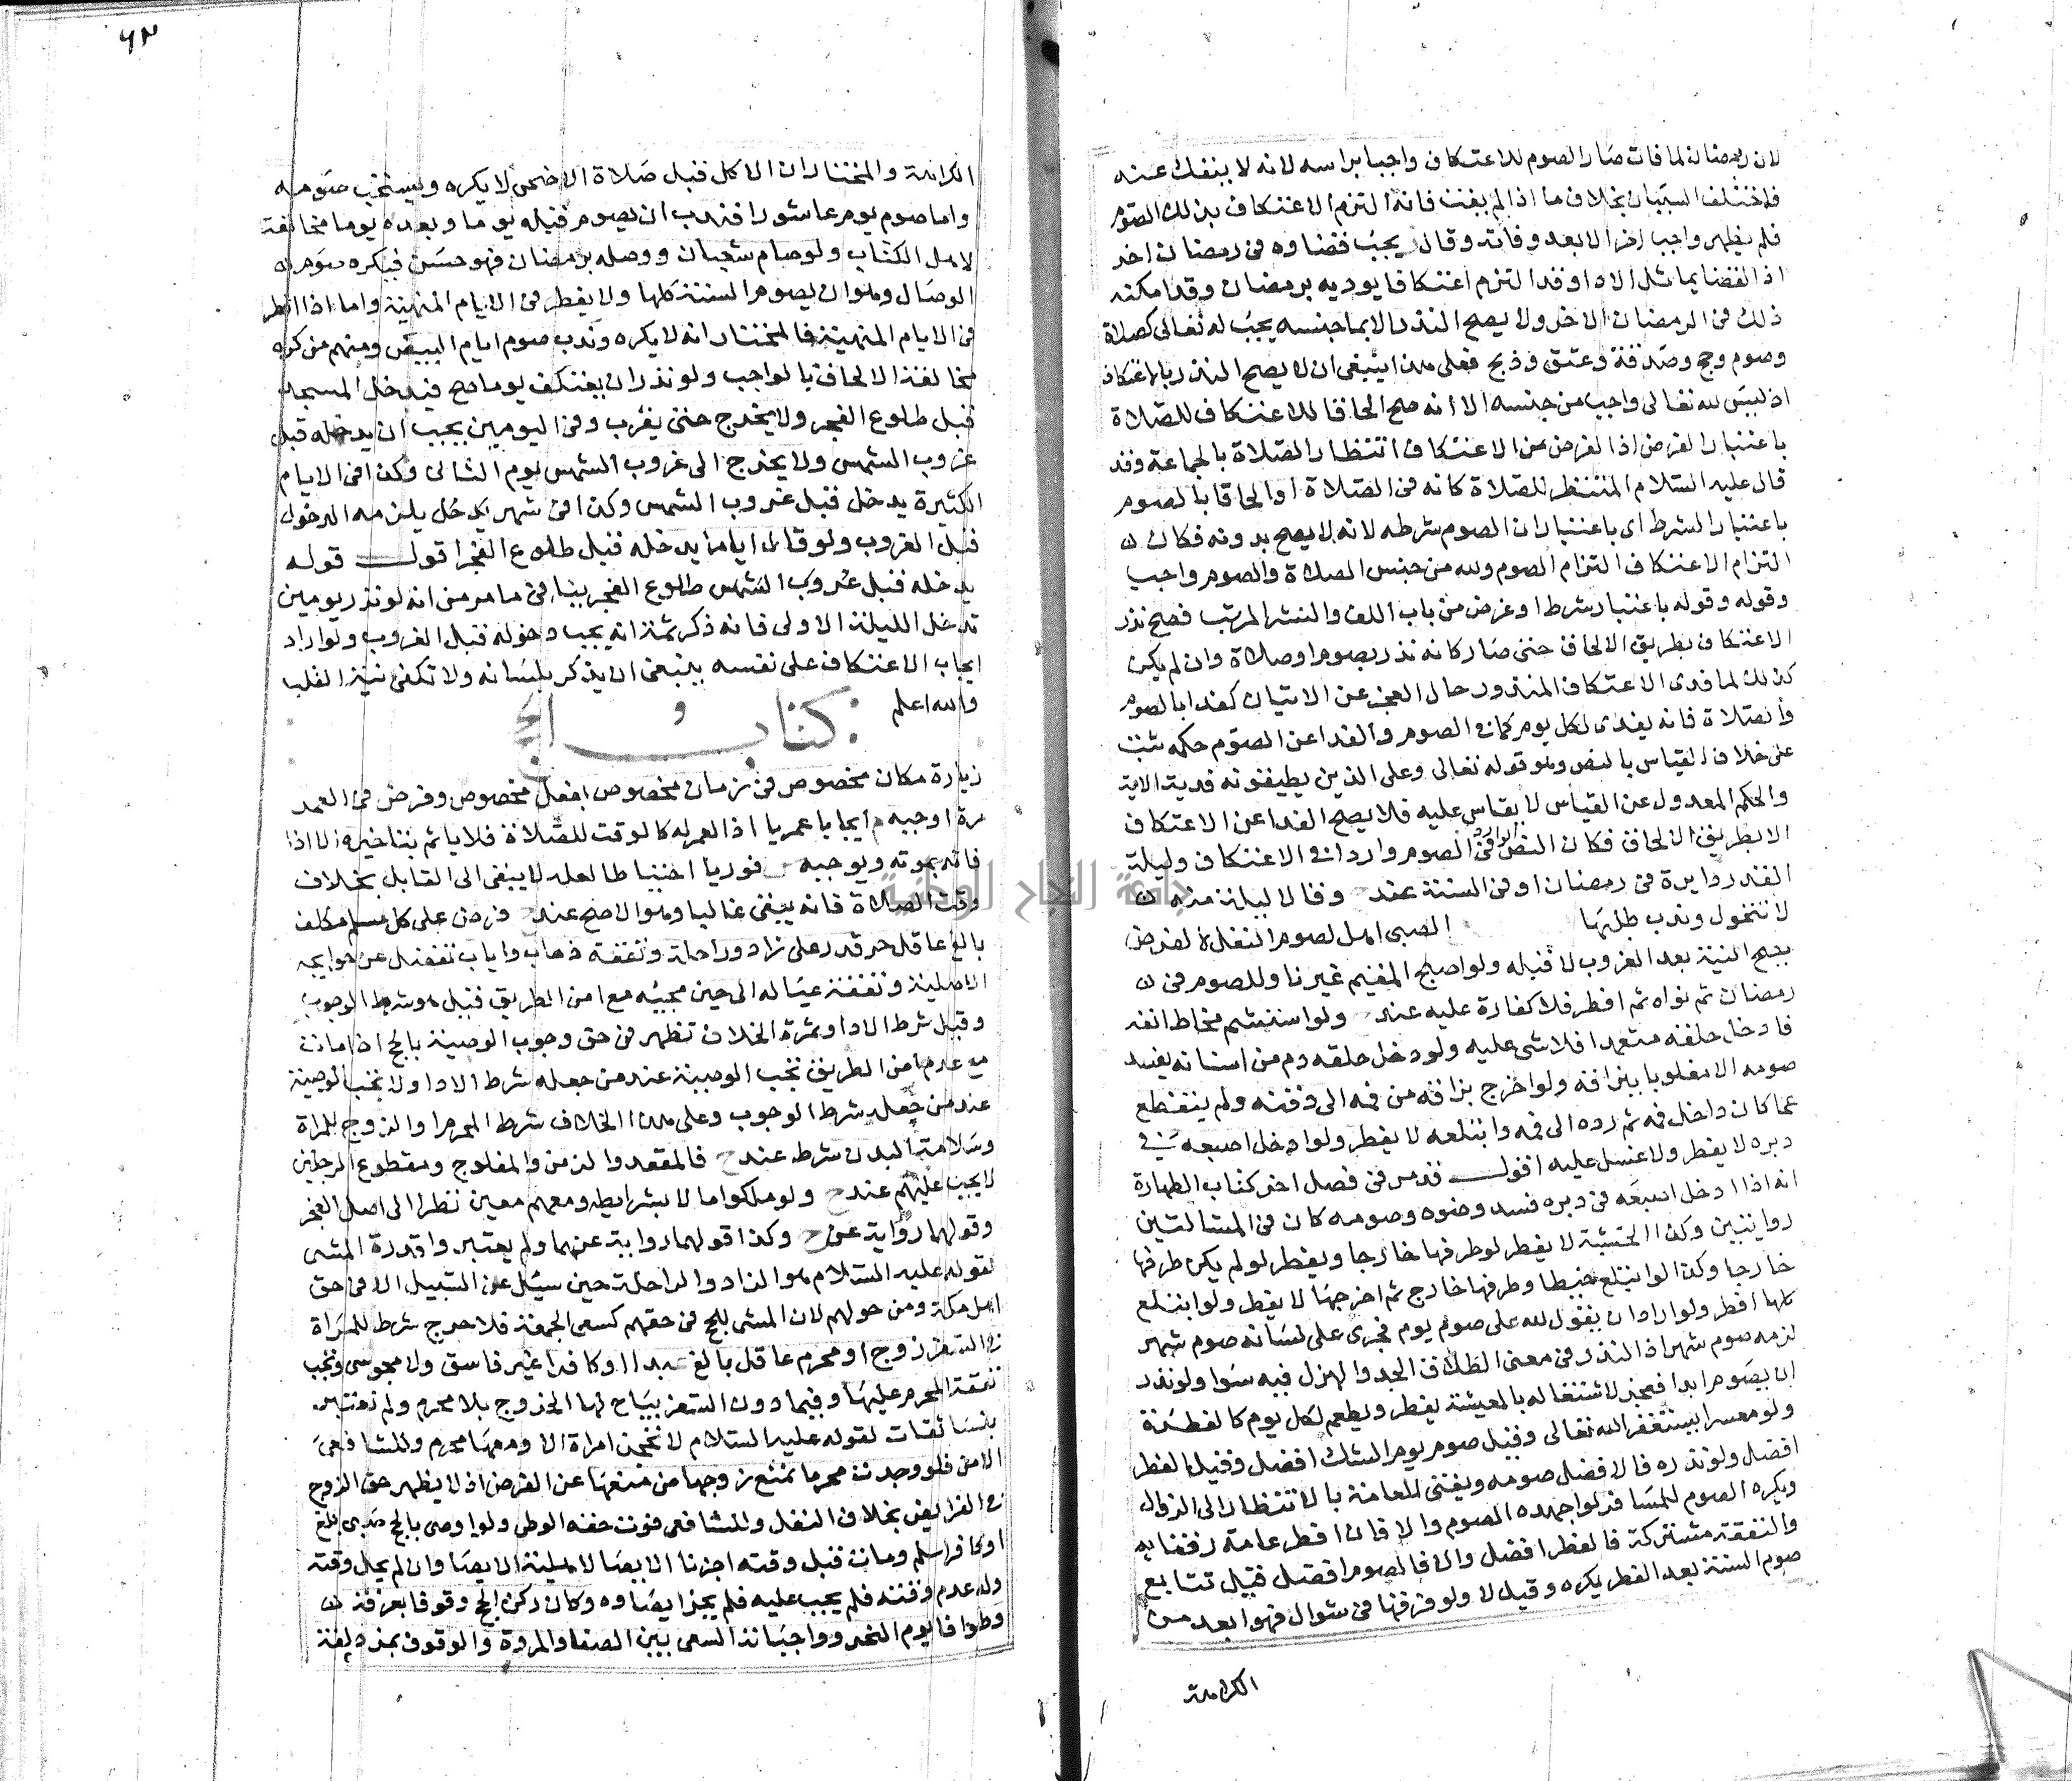 لان رمضان لما فات صار الصوم للاعتكاف واجبا براسه لانه لا ينفك عنه
فاختلف السببان بخلاف ما اذا لم يفت فانه التزم الاعتكاف بذلك الصوم
فلم يظهر واجبا اخر الا بعد وفاته وقال يجب قضاوه في رمضان اخر
اذ القضا يماثل الادا وقد التزم اعتكافا يوديه برمضان وقد امكنه
ذلك في الرمضان الاخر ولا يصح النذر الا بما جنسه يجب لله تعالى كصلاة
وصوم وحج وصدقة وعتق وذبح فعلى هذا ينبغي ان لا يصح النذر بالاعتكاف
اذ ليس لله تعالى واجب من جنسه الا انه صح الحاقا للاعتكاف للصلاة
باعتبار الغرض اذ الغرض من الاعتكاف انتظار الصلاة بالجماعة وقد
قال عليه السلام المنتظر للصلاة كانه في الصلاة او الحاقا بالصوم
باعتبار الشرط اي باعتبار ان الصوم شرطه لانه لا يصح بدونه فكان
التزام الاعتكاف التزام الصوم ولله من جنس الصلاة والصوم واجب
وقوله وقوله باعتبار شرط او غرض من باب اللف والنشر المرتب فصح نذر
الاعتكاف بطريق الالحاق حتى صار كانه نذر بصوم او صلاة وان لم يكن
كذلك لما فدى الاعتكاف المنذور حال العجز عن الاتيان كفدا بالصوم
والصلاة فانه يفدى لكل يوم كما في الصوم والفدا عن الصوم حكمه ثبت
على خلاف القياس بالنص وهو قوله تعالى وعلى الذين يطيقونه فدية الاية
والحكم المعدول عن القياس لا يقاس عليه فلا يصح الفدا عن الاعتكاف
الا بطريق الالحاق فكان النص الوارد في الصوم واردا في الاعتكاف وليلة
القدر دايرة في رمضان او في السنة عند ح وقالا ليلة منه
لا تتحول وندب طلبها الصبي اهل لصوم النفل لا لفرض
يصح النية بعد الغروب لا قبله ولو اصبح المقيم غير ناو للصوم في
رمضان ثم نواه ثم افطر فلا كفارة عليه عند ح ولو استنشم مخاط انفه
فادخل حلقه متعمدا فلا شي عليه ولو دخل حلقه دم من اسنانه يفسد
صومه الا مغلوبا ببزاقه ولو اخرج بزاقه من فمه الى ذقنه ولم ينقطع
عما كان داخل فمه ثم رده الى فمه وابتلعه لا يفطر ولو ادخل اصبعه في
دبره لا يفطر ولا غسل عليه اقول قد مر في فصل اخر كتاب الطهارة
انه اذا ادخل اصبعه في دبره فسد وضوه وصومه كان في المسالتين
روايتين وكذا الخشبة لا يفطر لو طرفها خارجا ويفطر لو لم يكن طرفها
خارجا وكذا لو ابتلع خيطا وطرفها خارج ثم اخرجها لا يفطر ولو ابتلع
كلها افطر ولو اراد ان يقول لله على صوم يوم فجرى على لسانه صوم شهر
لزمه صوم شهر اذ النذر في معنى الطلاق الجد والهزل فيه سوا ولو نذر
ان يصوم ابدا فعجز لاشتغاله بالمعيشة يفطر ويطعم لكل يوم كالفطرة
ولو معسرا يستغفر الله تعالى وقيل صوم يوم الشك افضل وقيل الفطر
افضل ولو نذره فالافضل صومه ويفتي للعامة بالانتظار الى الزوال
ويكره الصوم للمسافر لو اجهده الصوم والا فان افطر عامة رفقايه
والنفقة مشتركة فالفطر افضل والا فالصوم افضل قيل تتابع
صوم الستة بعد الفطر يكره وقيل لا ولو فرقها في شوال فهو ابعد من
الكراهة
٦٣
الكراهة والمختار ان الاكل قبل صلاة الاضحى لا يكره ويستحب صومه
واما صوم يوم عاشورا فندب ان يصوم قبله يوما وبعده يوما مخالفة
لاهل الكتاب ولو صام شعبان ووصله برمضان فهو حسن فيكره صوم
الوصال وهو ان يصوم السنة كلها ولا يفطر في الايام المنهية واما اذا افطر
في الايام المنهية فالمختار انه لا يكره وندب صوم ايام البيض ومنهم من كره
مخالفة الالحاق بالواجب ولو نذر ان يعتكف يوما صح فيدخل المسجد
قبل طلوع الفجر ولا يخرج حتى يغرب وفي اليومين يجب ان يدخله قبل
غروب الشمس ولا يخرج الى غروب الشمس يوم الثاني وكذا في الايام
الكثيرة يدخل قبل غروب الشمس وكذا في شهر يدخل يلزمه الدخول
قبل الغروب ولو قال اياما يدخله قبل طلوع الفجر اقول قوله
يدخله قبل غروب الشمس طلوع الفجر ينافي ما مر من انه لو نذر يومين
تدخل الليلة الاولى فانه ذكر ثمة انه يجب دخوله قبل الغروب ولو اراد
ايجاب الاعتكاف على نفسه ينبغي ان يذكر بلسانه ولا تكفي نية القلب
والله اعلم كتاب الحج
زيارة مكان مخصوص في زمان مخصوص بفعل مخصوص وفرض في العمر
مرة اوجبه م ايجابا عمريا اذ العمر له كالوقت للصلاة فلا ياثم بتاخيره الا اذا
فاته بموته ويوجبه س فوريا احتياطا لعله لا يبقى الى القابل بخلاف
وقت الصلاة فانه يبقى غالبا وهو الاصح عند ح فرض على كل مسلم مكلف
بالغ عاقل حر قدر على زاد وراحلة ونفقة ذهاب واياب تفضل عن حوايجه
الاصلية ونفقة عياله الى حين مجيئه مع امن الطريق قيل هو شرط الوجوب
وقيل شرط الادا وثمرة الخلاف تظهر في حق وجوب الوصية بالحج اذا مات
مع عدم امن الطريق تجب الوصية عند من جعله شرط الادا ولا تجب الوصية
عند من جعله شرط الوجوب وعلى هذا الخلاف شرط المحرم او الزوج للمراة
وسلامة البدن شرط عند ح فالمقعد والزمن والمفلوج ومقطوع الرجلين
لا يجب عليهم عند ح ولو ملكوا مالا بشرايط ومعهم معين نظرا الى اصل العجز
وقولهما رواية عن ح وكذا قولهما رواية عنهما ولم يعتبروا قدرة المشي
لقوله عليه السلام هو الزاد والراحلة حين سئل عن السبيل الا في حق
اهل مكة ومن حولهم لان المشي للحج في حقهم كسعي الجمعة فلا حرج شرط للمراة
في السفر زوج او محرم عاقل بالغ عبدا او كافرا غير فاسق ولا مجوسي وتجب
نفقة المحرم عليها وفيما دون السفر يباح لها الخروج بلا محرم ولم نعتبر
بنسا ثقات لقوله عليه السلام لا تحجن امراة الا ومعها محرم وللشافعي
الامن فلو وجدت محرما تمنع زوجها من منعها عن الفرض اذ لا يظهر حق الزوج
في الفرايض بخلاف النفل وللشافعي فوت حقه الوطي ولو اوصى بالحج صبي بلغ
او كافر اسلم ومات قبل وقته اجزنا الايصا لاهلية الايصا وان لم يحل وقته
وله عدم وقته فلم يجب عليه فلم يجز ايصاوه وكان ركن الحج وقوفا بعرفة
وطوافا يوم النحر وواجباته السعي بين الصفا والمروة والوقوف بمزدلفة
جامعة النجاح الوطنية